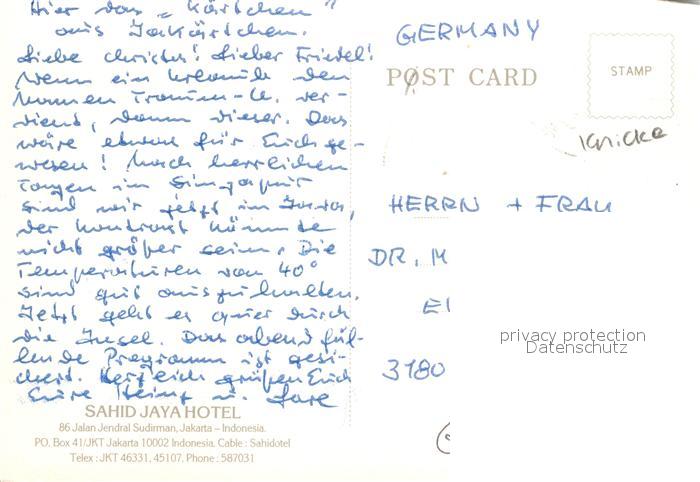 Hier das „Kärtchen"
aus Jakärtchen.
Liebe Christa! Lieber Friedel!
Wenn ein Urlaub den
Namen Traum-U. ver-
dient, dann dieser. Das
wäre etwas für Euch ge-
wesen! Nach herrlichen
Tagen in Singapur
sind wir jetzt in Java,
der Kontrast könnte
nicht größer sein. Die
Temperaturen von 40°
sind gut auszuhalten.
Jetzt geht es quer durch
die Insel. Das abendfül-
lende Programm ist gesi-
chert. Herzlich grüßen Euch
Eure Heinz u.
SAHID JAYA HOTEL
86 Jalan Jendral Sudirman, Jakarta – Indonesia.
PO. Box 41/JKT Jakarta 10002 Indonesia. Cable : Sahidotel
Telex : JKT 46331, 45107. Phone : 587031
GERMANY
POST CARD
STAMP
Knicke
HERRN + FRAU
DR. M
EI
privacy protection
Datenschutz
3180